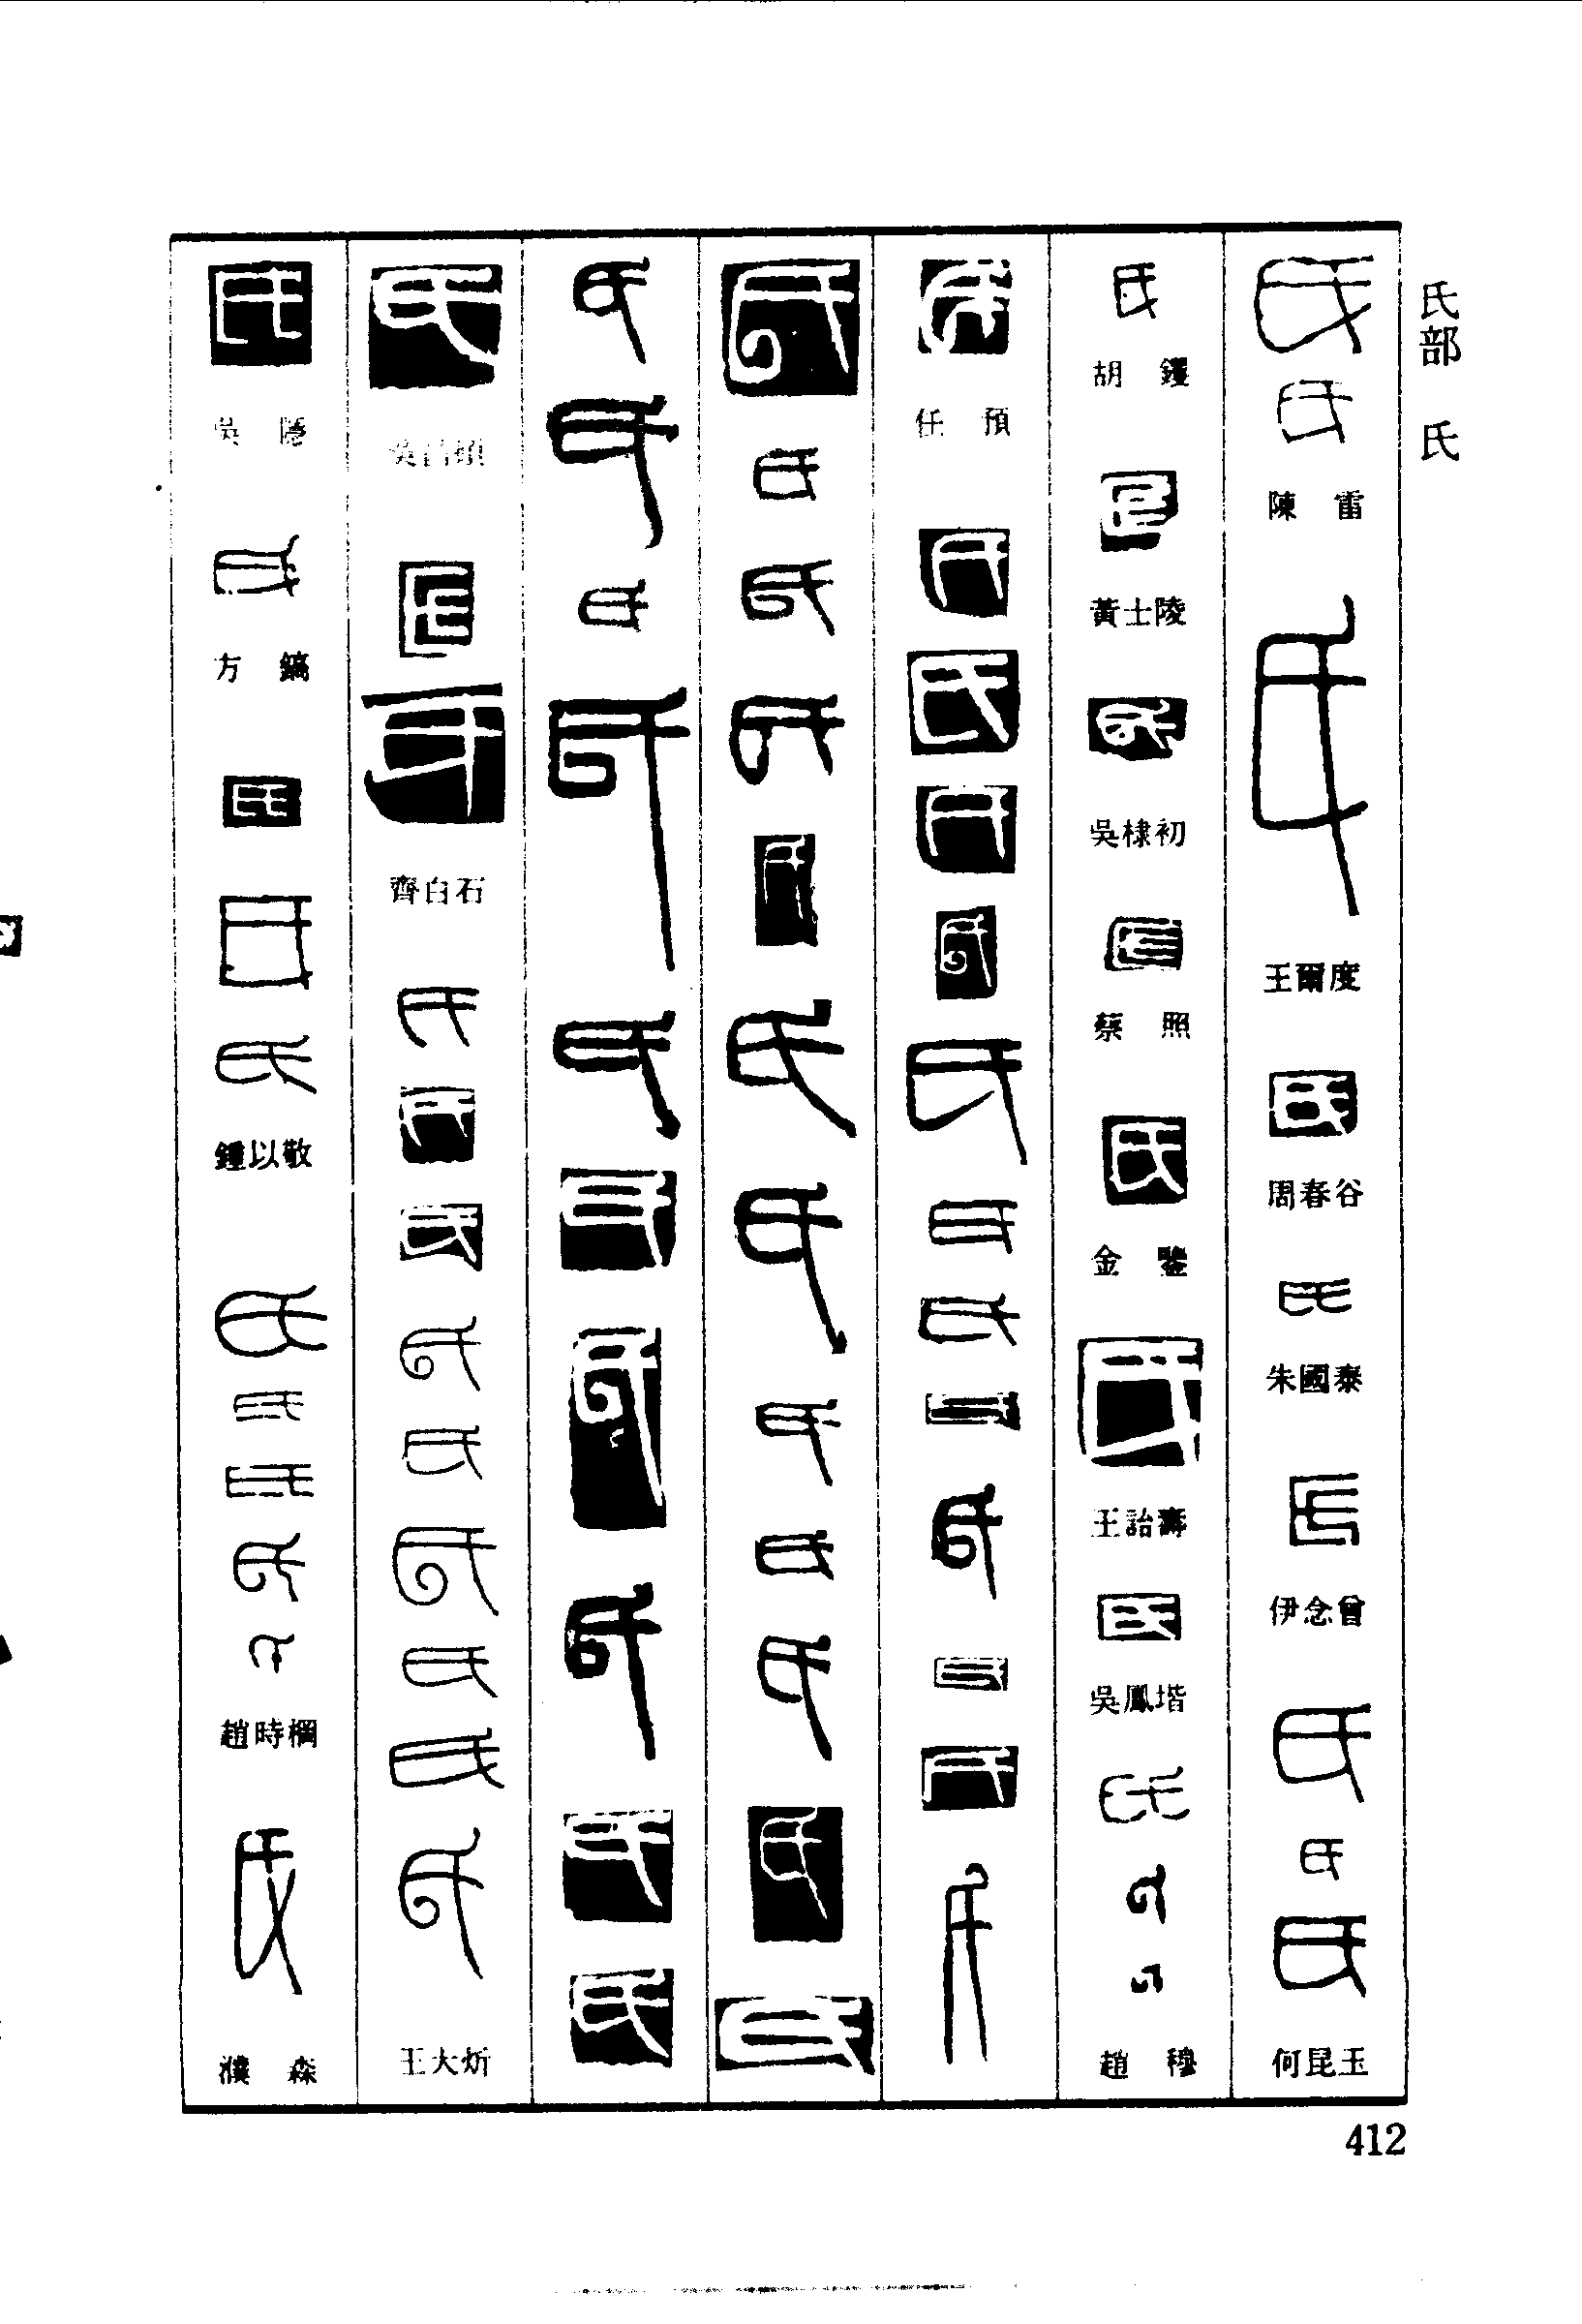 氏部 氏
陳雷
王爾度
周春谷
朱國泰
伊念曾
何昆玉
胡钁
黃士陵
吳棣初
蔡照
金鑒
王詒壽
吳鳳堦
趙穆
任預
吳昌碩
齊白石
王大炘
吳隱
方鎬
鍾以敬
趙時棡
濮森
412